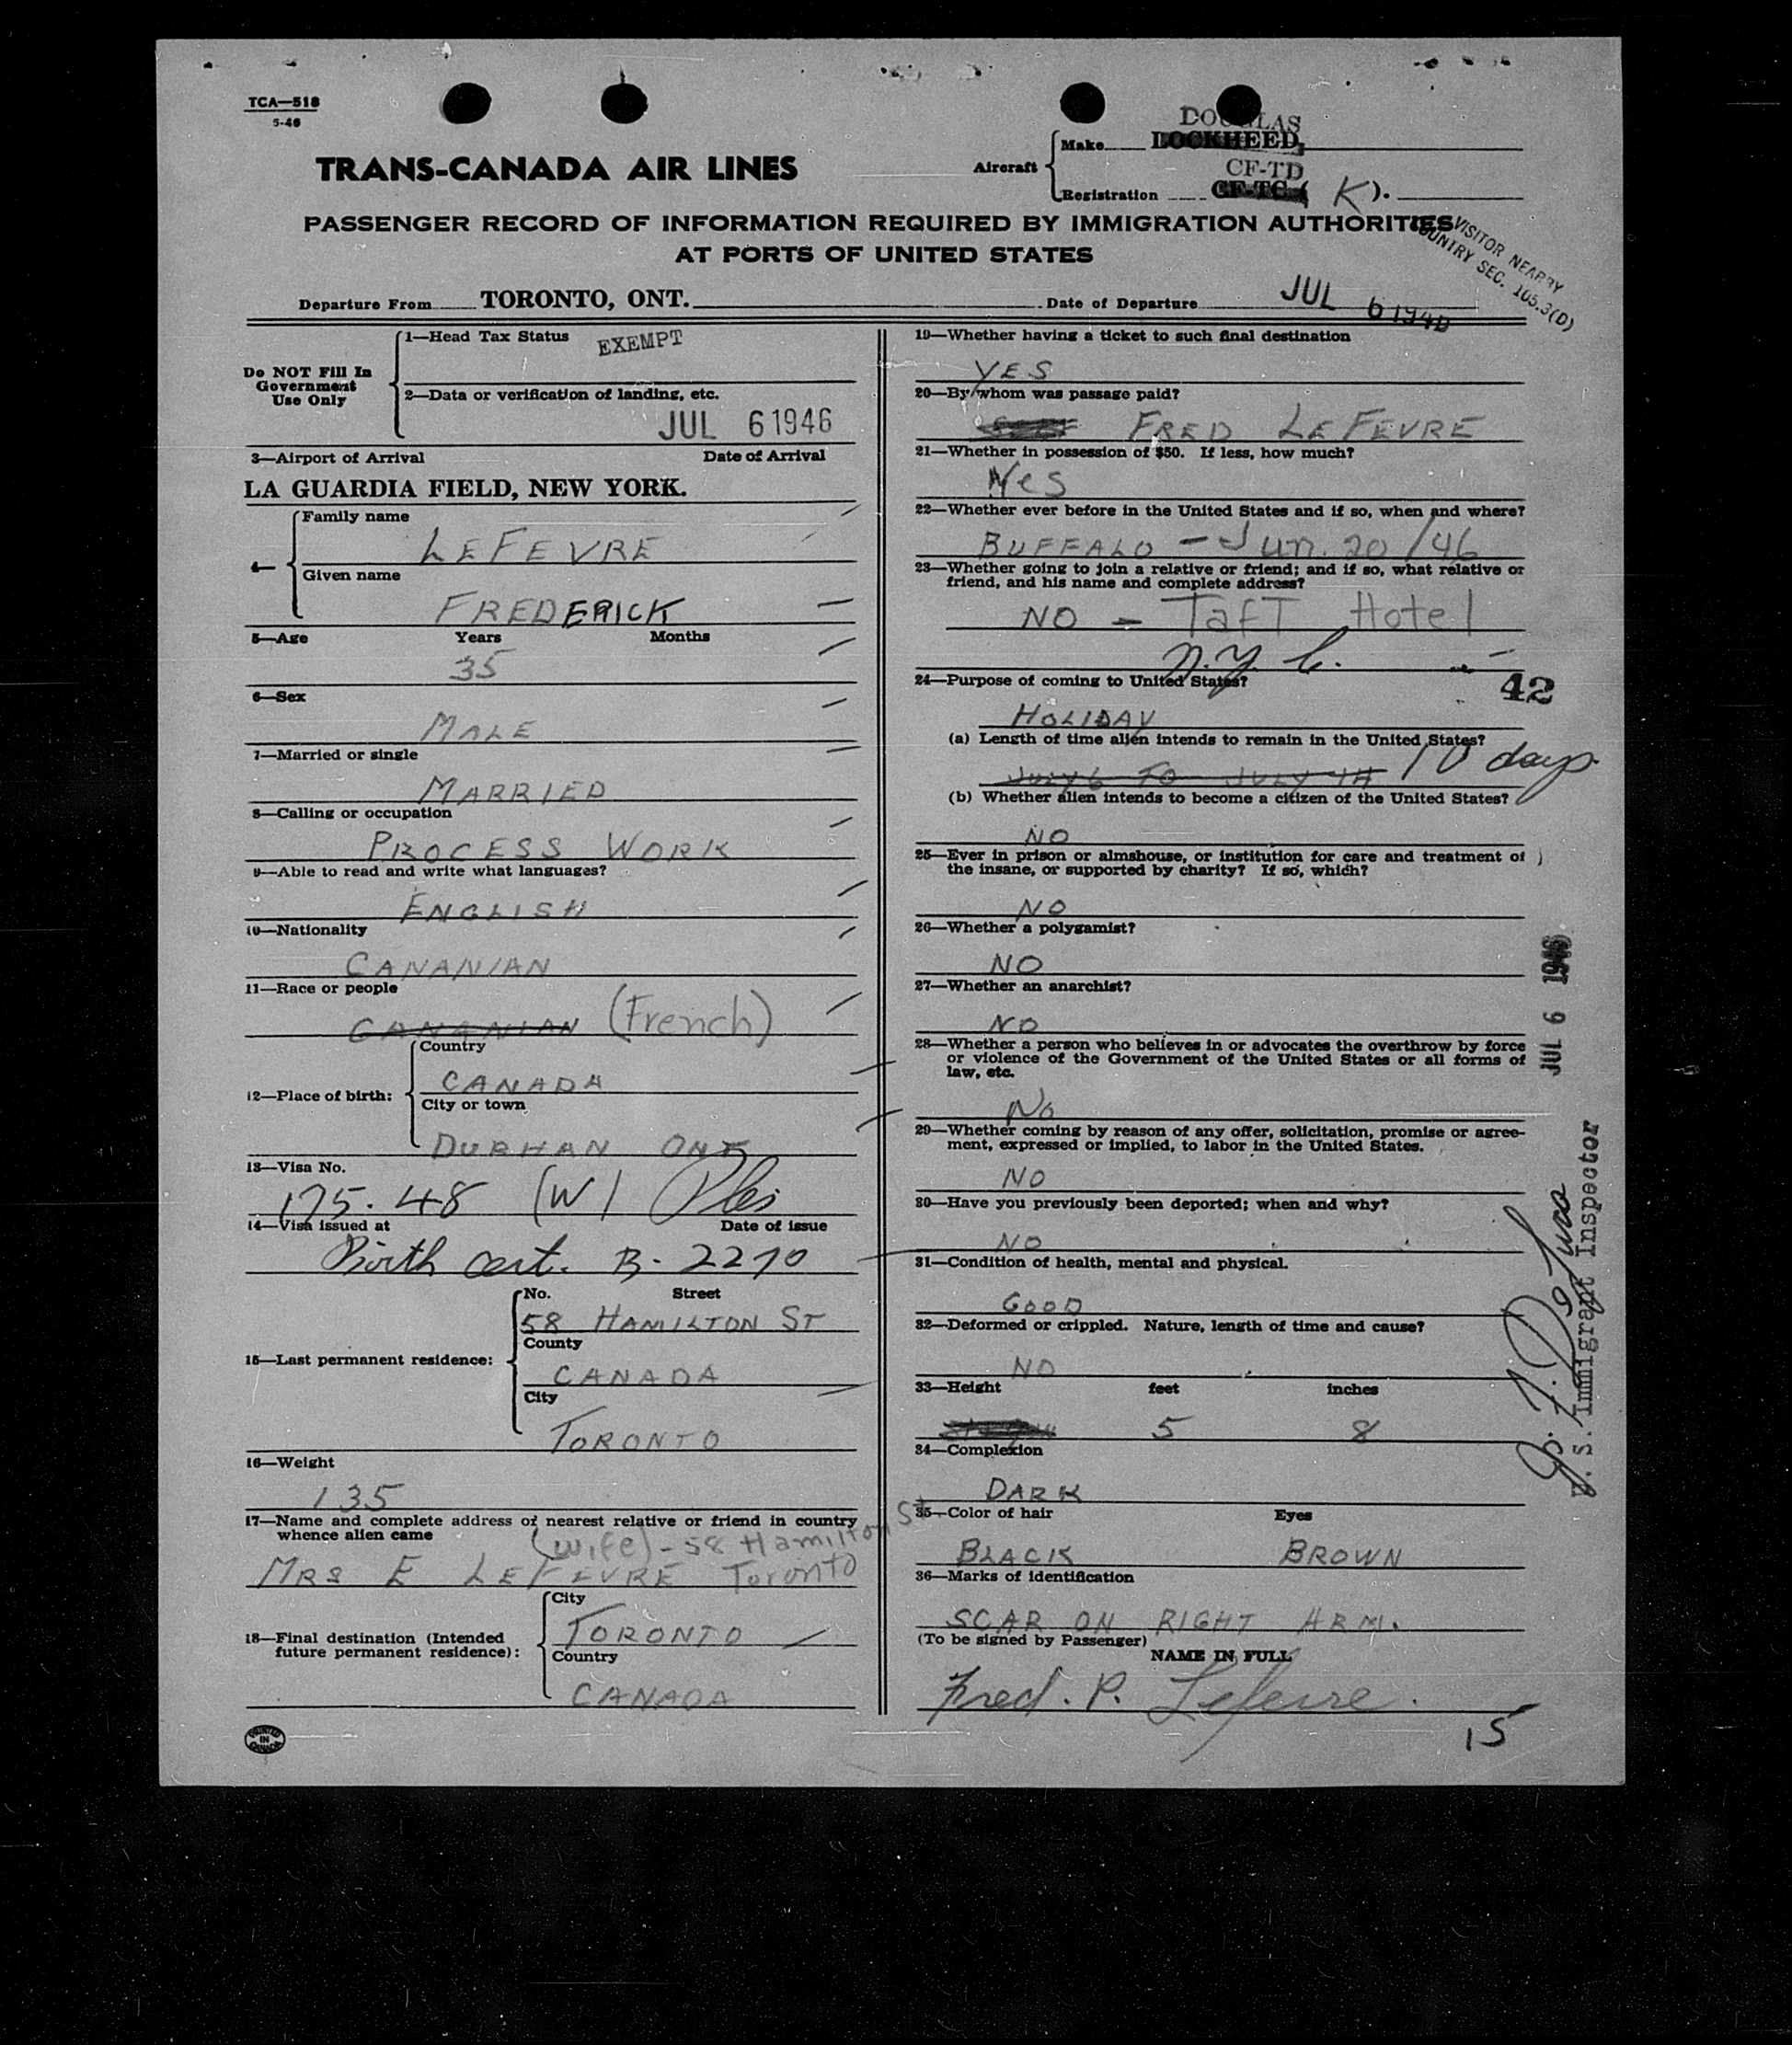 TCA—518
5-46
DOUGLAS
Aircraft
Make LOCKHEED,
CF-TD
Registration CF-TC ( K ).
TRANS-CANADA AIR LINES
PASSENGER RECORD OF INFORMATION REQUIRED BY IMMIGRATION AUTHORITIES
AT PORTS OF UNITED STATES
VISITOR NEARBY
COUNTRY SEC. 105.3(D)
Departure From TORONTO, ONT. Date of Departure JUL 6 1946
Do NOT Fill In
Government
Use Only
1—Head Tax Status EXEMPT
2—Data or verification of landing, etc.
JUL 6 1946
3—Airport of Arrival Date of Arrival
LA GUARDIA FIELD, NEW YORK.
4—
Family name
LEFEVRE
Given name
FREDERICK
5—Age Years Months
35
6—Sex
MALE
7—Married or single
MARRIED
8—Calling or occupation
PROCESS WORK
9—Able to read and write what languages?
ENGLISH
10—Nationality
CANANIAN
11—Race or people
CANANIAN (French)
12—Place of birth:
Country
CANADA
City or town
DURHAN ONT
13—Visa No.
175.48 (W)
14—Visa issued at Date of issue
Birth cert. B-2270
15—Last permanent residence:
No. Street
58 HAMILTON ST
County
CANADA
City
TORONTO
16—Weight
135
17—Name and complete address of nearest relative or friend in country
whence alien came
(wife) - 58 Hamilton St
MRS E LEFEVRE Toronto
18—Final destination (Intended
future permanent residence):
City
TORONTO
Country
CANADA
PRINTED
IN
CANADA
19—Whether having a ticket to such final destination
YES
20—By whom was passage paid?
FRED LEFEVRE
21—Whether in possession of $50. If less, how much?
Yes
22—Whether ever before in the United States and if so, when and where?
BUFFALO - Jun. 20/46
23—Whether going to join a relative or friend; and if so, what relative or
friend, and his name and complete address?
NO - Taft Hotel
N.Y.C.
24—Purpose of coming to United States?
42
HOLIDAY
(a) Length of time alien intends to remain in the United States?
JULY 6 TO JULY 9TH 10 days.
(b) Whether alien intends to become a citizen of the United States?
NO
25—Ever in prison or almshouse, or institution for care and treatment of
the insane, or supported by charity? If so, which?
NO
26—Whether a polygamist?
NO
27—Whether an anarchist?
NO
28—Whether a person who believes in or advocates the overthrow by force
or violence of the Government of the United States or all forms of
law, etc.
No
29—Whether coming by reason of any offer, solicitation, promise or agree-
ment, expressed or implied, to labor in the United States.
NO
30—Have you previously been deported; when and why?
NO
31—Condition of health, mental and physical.
GOOD
32—Deformed or crippled. Nature, length of time and cause?
NO
33—Height feet inches
5 8
34—Complexion
DARK
35—Color of hair Eyes
BLACK BROWN
36—Marks of identification
SCAR ON RIGHT ARM.
(To be signed by Passenger)
NAME IN FULL
Fred. P. Lefevre.
15
JUL 6 1946
U. S. Immigrant Inspector